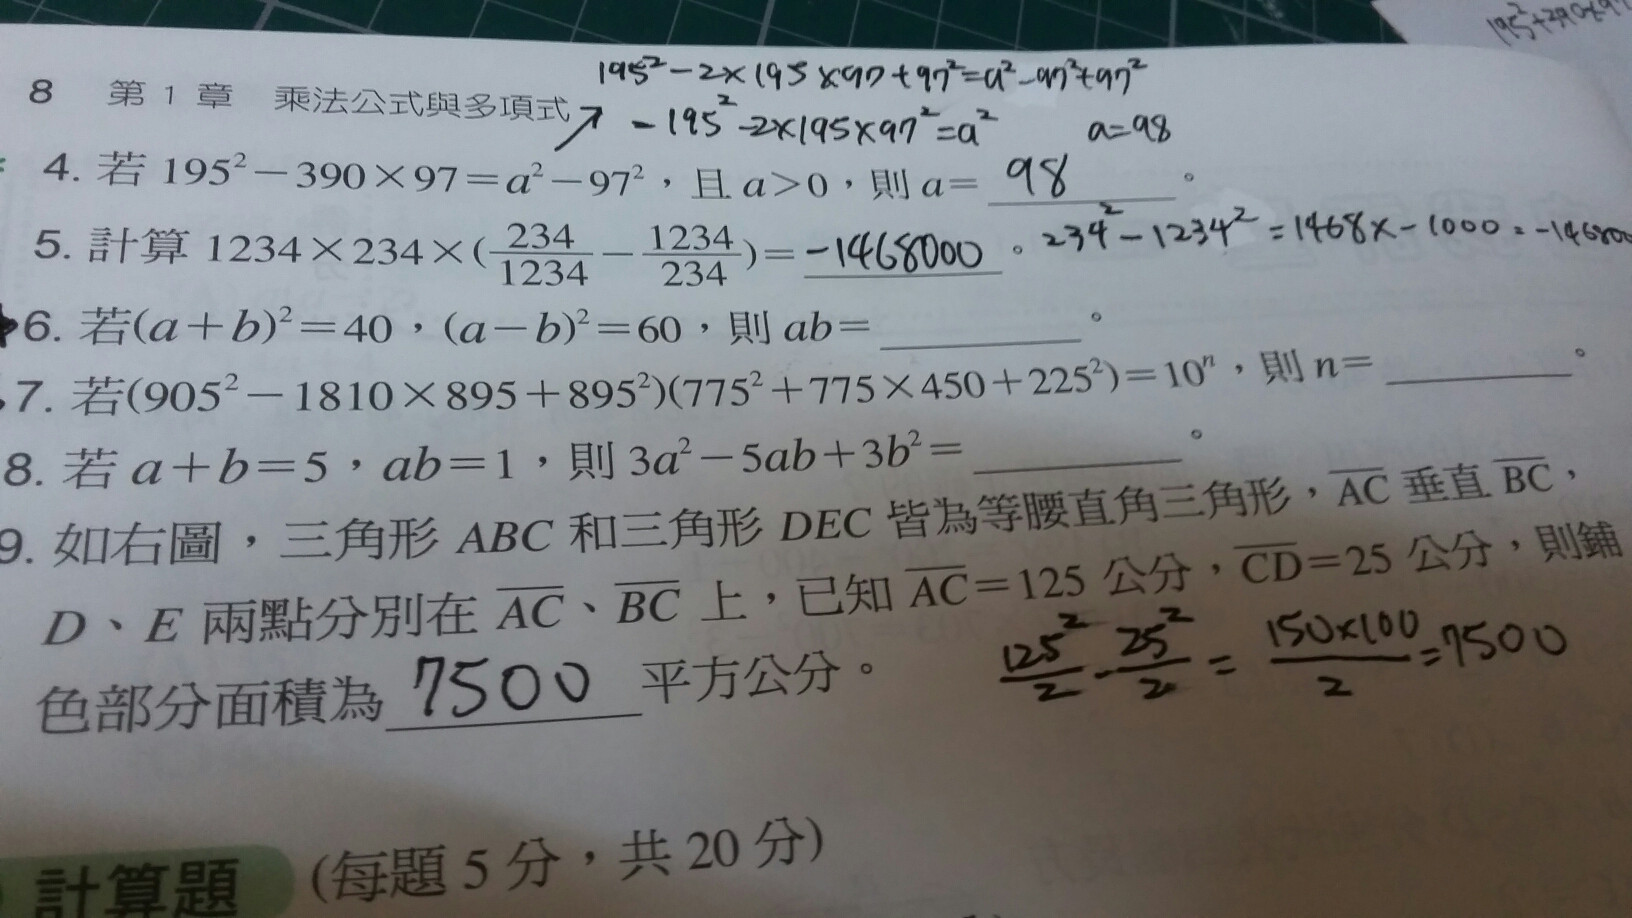 195²+2
195²-2×195×97+97²=a²-97²+97²
8 第1章 乘法公式與多項式
↗ -195²-2×195×97²=a² a=98
4. 若 195²-390×97=a²-97²，且 a>0，則 a= 98 。
5. 計算 1234×234×(234/1234-1234/234)= -1468000 。 234²-1234²=1468×-1000=-146800
6. 若(a+b)²=40，(a-b)²=60，則 ab=______。
7. 若(905²-1810×895+895²)(775²+775×450+225²)=10ⁿ，則 n=______。
8. 若 a+b=5，ab=1，則 3a²-5ab+3b²=______。
9. 如右圖，三角形 ABC 和三角形 DEC 皆為等腰直角三角形，A̅C̅ 垂直 B̅C̅，
D、E 兩點分別在 A̅C̅、B̅C̅ 上，已知 A̅C̅=125 公分，C̅D̅=25 公分，則鋪
色部分面積為 7500 平方公分。 125²/2-25²/2=150×100/2=7500
計算題 (每題 5 分，共 20 分)